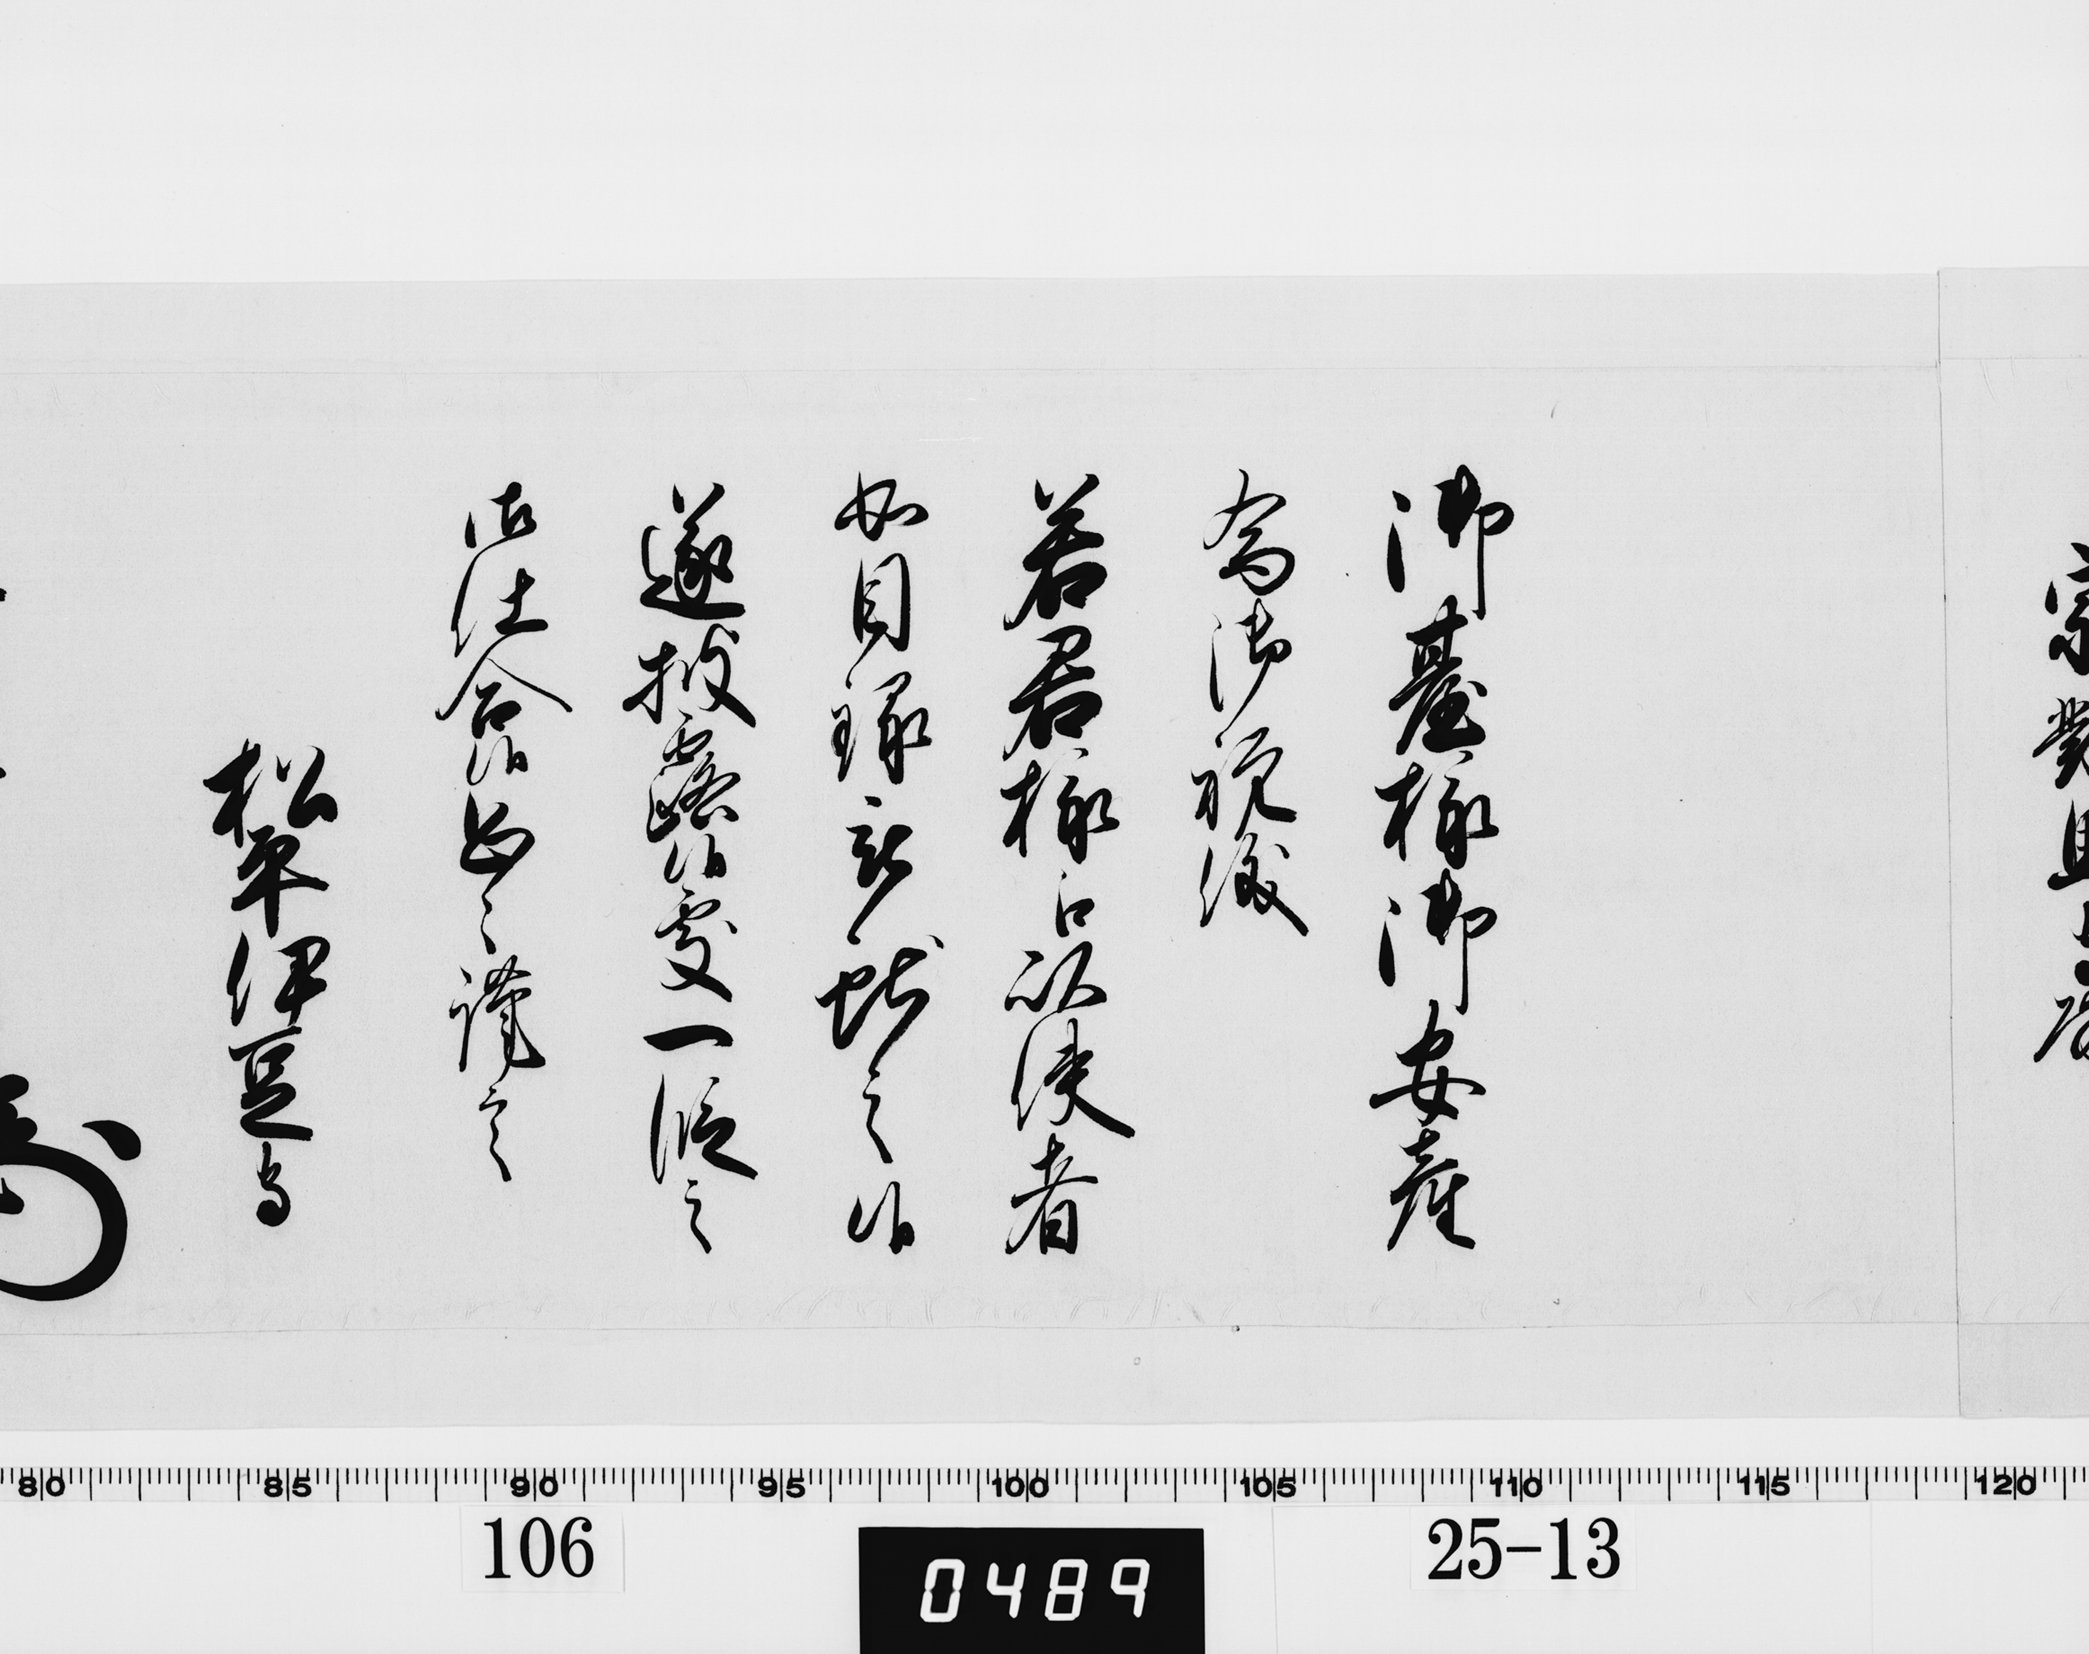 宗對馬守
御臺様御安産
為御祝儀
若君様江以使者
如目録被献之候
遂披露候處一段之
御仕合候恐々謹言
松平伊豆守
80 85 90 95 100 105 110 115 120
106
0489
25-13